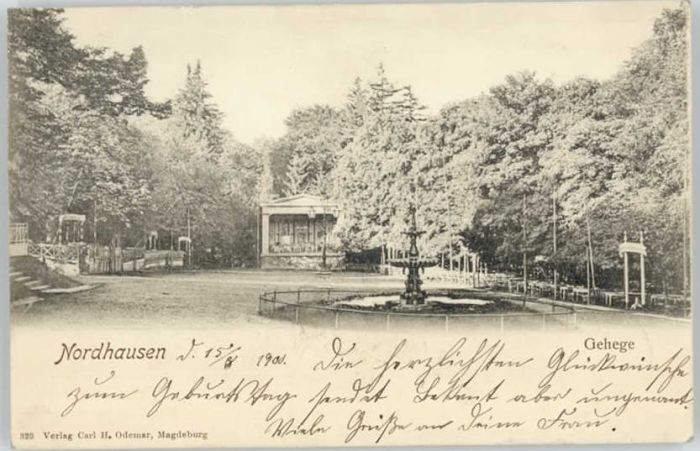 Nordhausen d. 15/8 1900. Die herzlichsten Glückwünsche
Gehege
zum Geburtstag sendet Bekant aber ungenant.
Viele Grüße an Deine Frau.
323 Verlag Carl H. Odemar, Magdeburg